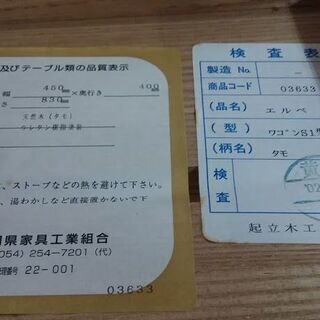 及びテーブル類の品質表示
幅 450mm×奥行き 400
さ 830mm
天然木(タモ)
ウレタン樹脂塗装
、ストーブなどの熱を避けて下さい。
、湯わかしなど直接置かないで下
県家具工業組合
054)254-7201(代)
番号 22-001
03633
検査表
製造No. —
商品コード 03633
(品名) エルベ
(型) ワゴンS1型
(柄名) タモ
検査
起立木工